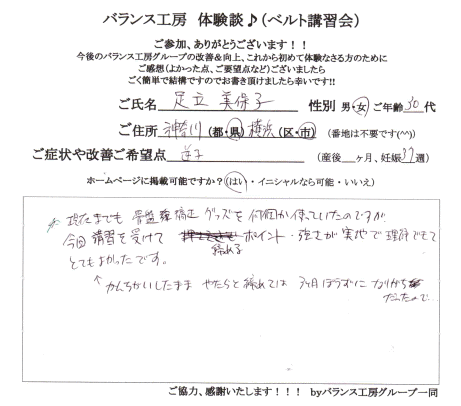 バランス工房 体験談♪(ベルト講習会)
ご参加、ありがとうございます！！
今後のバランス工房グループの改善＆向上、これから初めて体験なさる方のために
ご感想(よかった点、ご要望点など)ございましたら
ごく簡単で結構ですのでお書き頂けましたら幸いです!!
ご氏名 足立 美保子 性別 男・女 ご年齢 30 代
ご住所 神奈川 (都・県) 横浜 (区・市) (番地は不要です(^^))
ご症状や改善ご希望点 (産後 ヶ月、妊娠 37 週)
ホームページに掲載可能ですか？(はい・イニシャルなら可能・いいえ)
現在までも 骨盤矯正グッズを何個か使っていたのですが
今回 講習を受けて 締める ポイント・強さが実地で理解できて
とてもよかったです。
↑かんちがいしたまま やたらと締めては 3ヶ月ほうずに なりがち
だったので…
ご協力、感謝いたします！！！ byバランス工房グループ一同